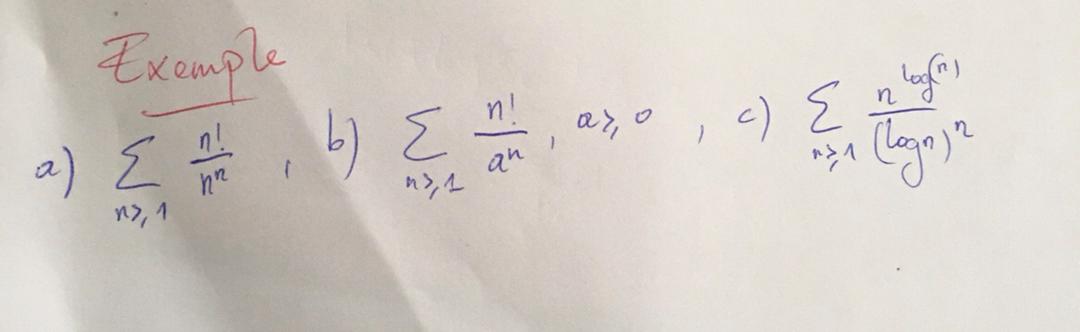 Exemple
a) ∑_{n≥1} n!/n^n , b) ∑_{n≥1} n!/a^n , a≥0 , c) ∑_{n≥1} n^{log(n)}/(log n)^n